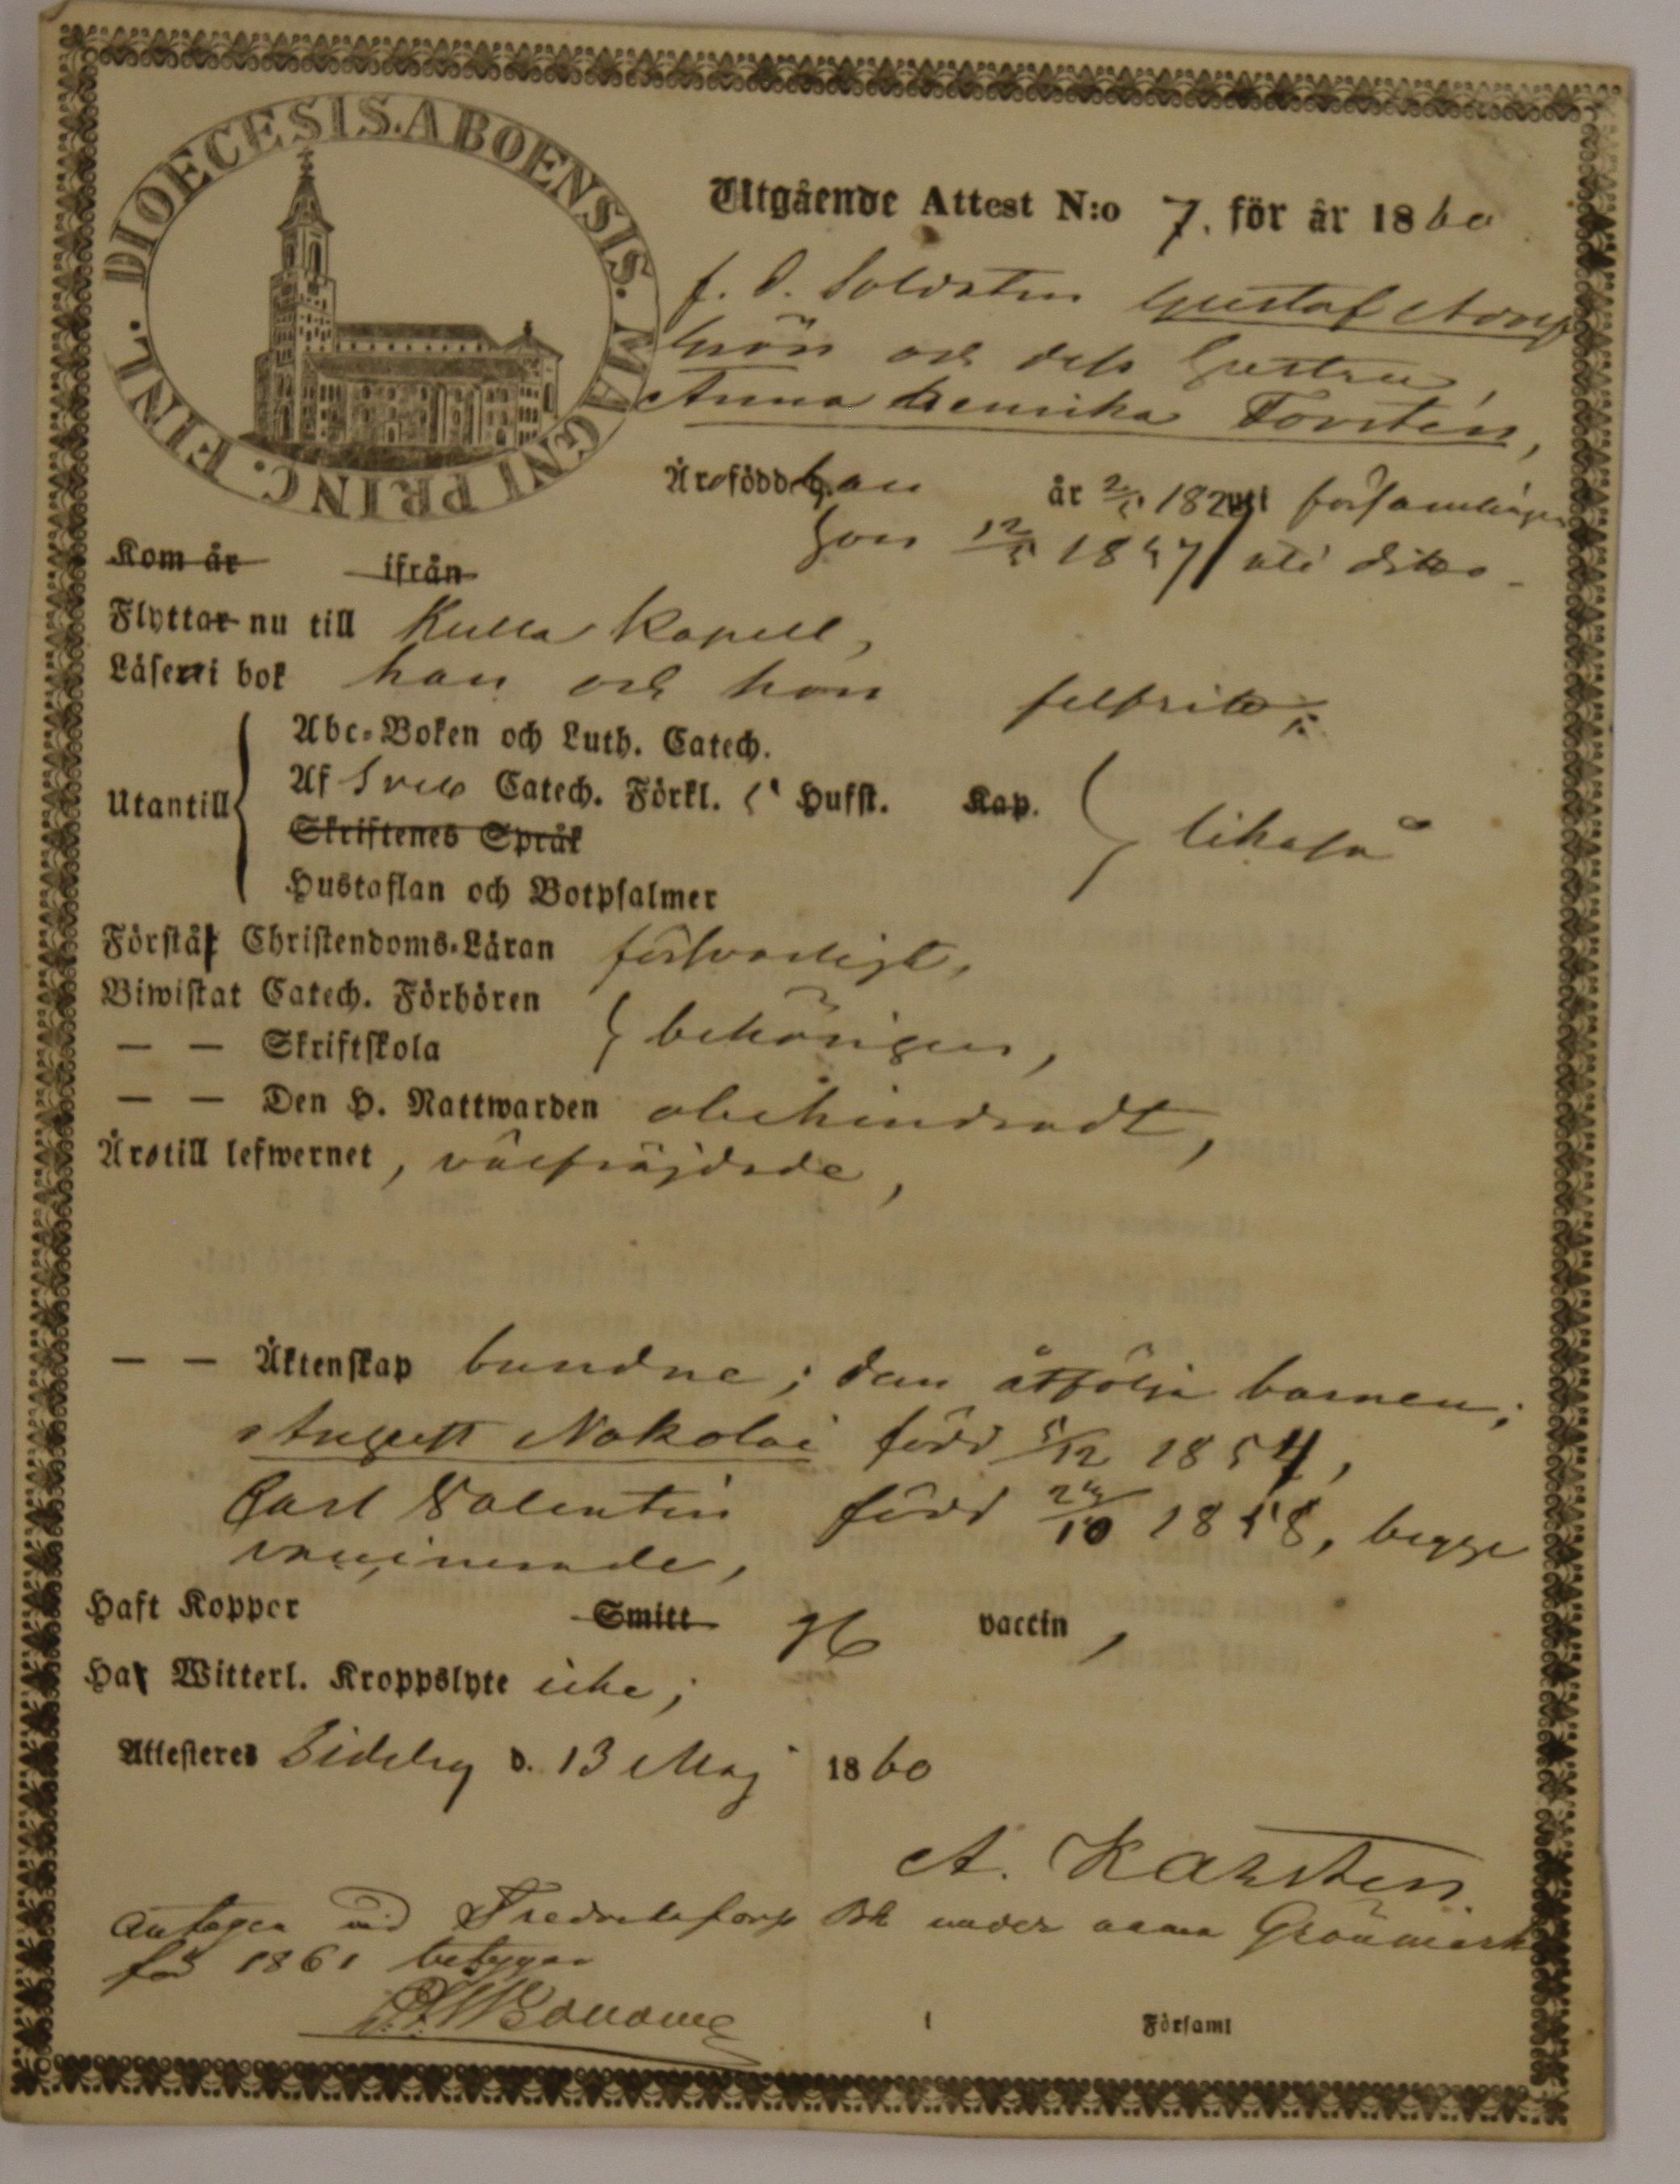 DIOECESIS. ABOENSIS. MAGNI PRINC. FINL.
Utgående Attest N:o 7. för år 1860
f. d. Soldaten Gustaf Adolf
Grön och dess hustru,
Anna Henrika Torstén,
Äro född han år 2/5 182 uti församlingen
hon 12/5 18 7 uti ditto -
Kom år ifrån
Flytta nu till Kulla Kapell,
Läsa i bok han och hon felfritt
Utantill
Abc-Boken och Luth. Catech.
Af Sveb Catech. Förkl. Husst. Kap.
likaså
Skriftenes Språk
Hustaflan och Botpsalmer
Förstå Christendoms-Läran försvarligt,
Biwistat Catech. Förhören
— — Skriftskola behörigen,
— — Den H. Nattwarden obehindradt,
Äro till lefwernet, välfräjdade,
— — Äktenskap bundne; dem åtfölja barnen;
August Nikolai född 5/12 1854,
Carl Valentin född 24/10 1858, begge
vaccinerade,
Haft Koppor Smitt vaccin,
Ha Witterl. Kroppslyte icke;
Attesteres Sideby d. 13 Maj 1860
A. Karsten.
Antagen vid Fredriksfors Bk under namn Grönmark
för 1861 betygar
i Församl